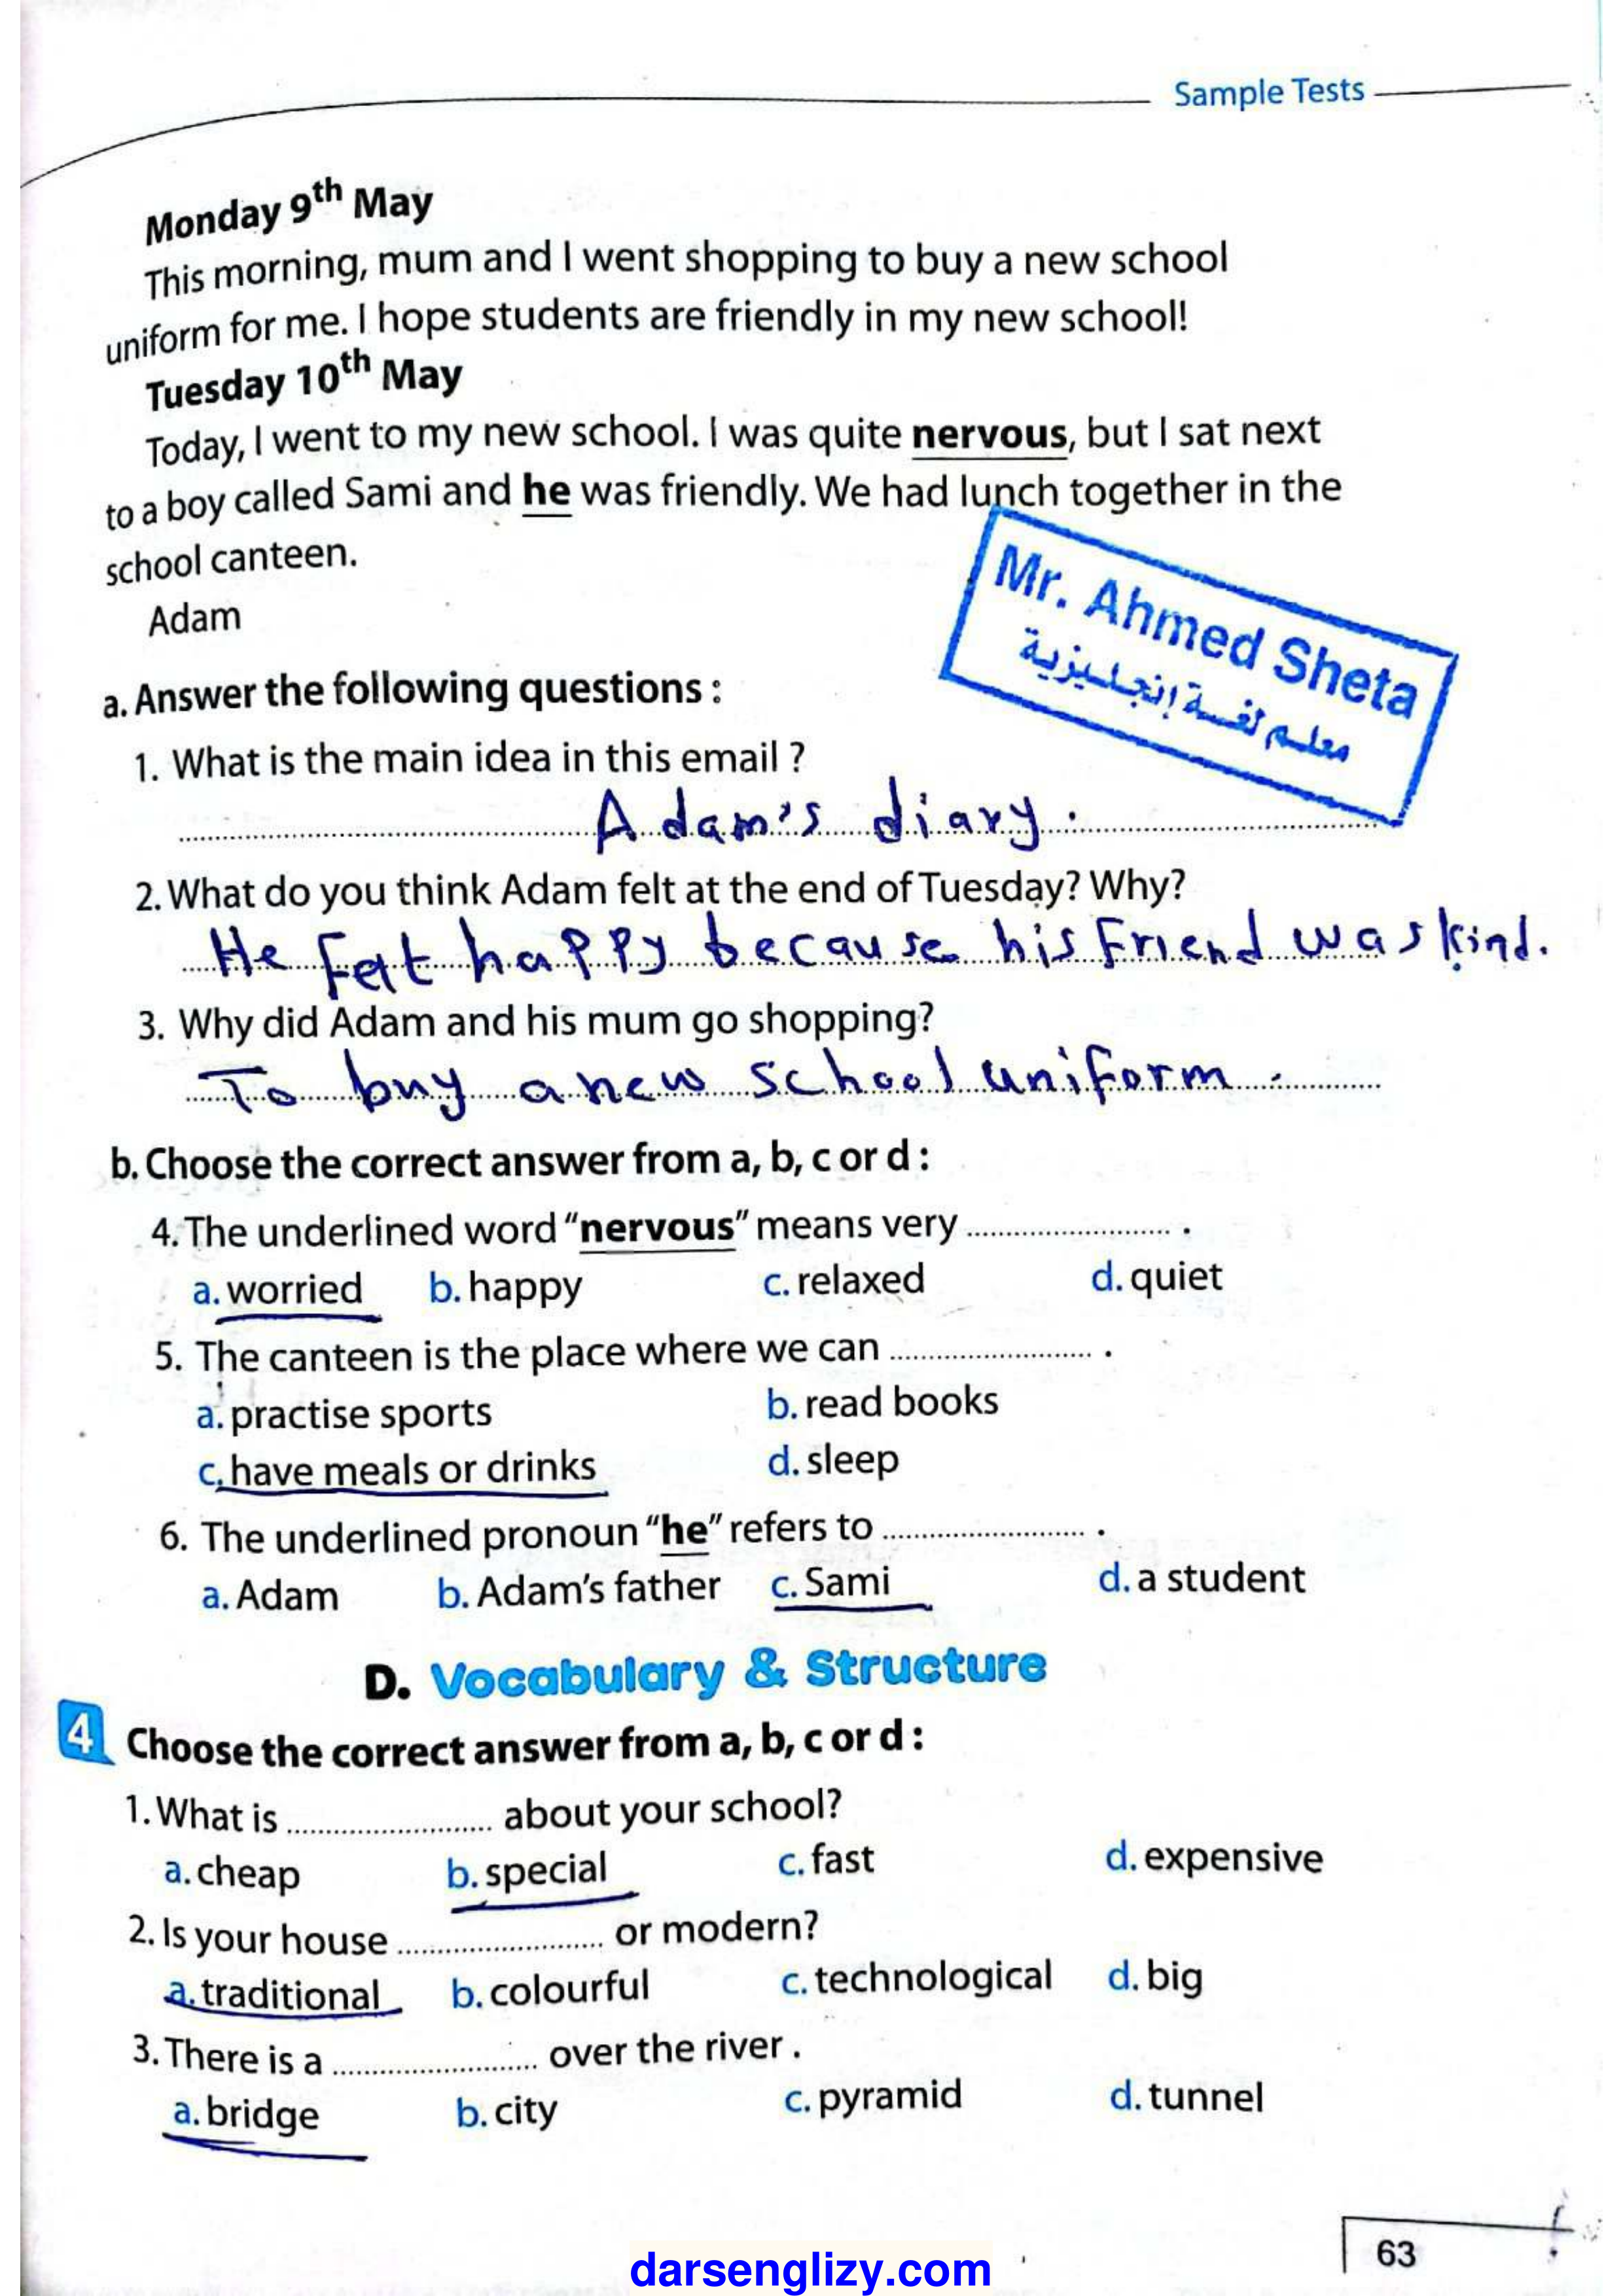 Sample Tests
Monday 9th May
This morning, mum and I went shopping to buy a new school
uniform for me. I hope students are friendly in my new school!
Tuesday 10th May
Today, I went to my new school. I was quite nervous, but I sat next
to a boy called Sami and he was friendly. We had lunch together in the
school canteen.
Adam
Mr. Ahmed Sheta
معلم لغة إنجليزية
a. Answer the following questions :
1. What is the main idea in this email ?
Adam's diary.
2. What do you think Adam felt at the end of Tuesday? Why?
He felt happy because his friend was kind.
3. Why did Adam and his mum go shopping?
To buy a new school uniform.
b. Choose the correct answer from a, b, c or d :
4. The underlined word "nervous" means very ........................ .
a. worried b. happy c. relaxed d. quiet
5. The canteen is the place where we can ........................ .
a. practise sports b. read books
c. have meals or drinks d. sleep
6. The underlined pronoun "he" refers to ........................ .
a. Adam b. Adam's father c. Sami d. a student
D. Vocabulary & Structure
4 Choose the correct answer from a, b, c or d :
1. What is ........................ about your school?
a. cheap b. special c. fast d. expensive
2. Is your house ........................ or modern?
a. traditional b. colourful c. technological d. big
3. There is a ........................ over the river .
a. bridge b. city c. pyramid d. tunnel
63
darsenglizy.com